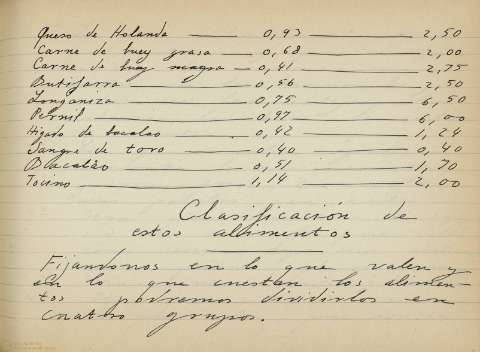 Queso de Holanda — 0,93 — 2,50
Carne de buey grasa — 0,68 — 2,00
Carne de buey magra — 0,41 — 2,75
Butifarra — 0,56 — 2,50
Longaniza — 0,75 — 6,50
Pernil — 0,97 — 6,00
Higado de bacalao — 0,42 — 1,24
Sangre de toro — 0,40 — 0,40
Bacalao — 0,51 — 1,70
Tocino — 1,14 — 2,00
Clasificación de
estos alimentos
Fijandonos en lo que valen y
en lo que cuestan los alimen-
tos podremos dividirlos en
cuatro grupos.